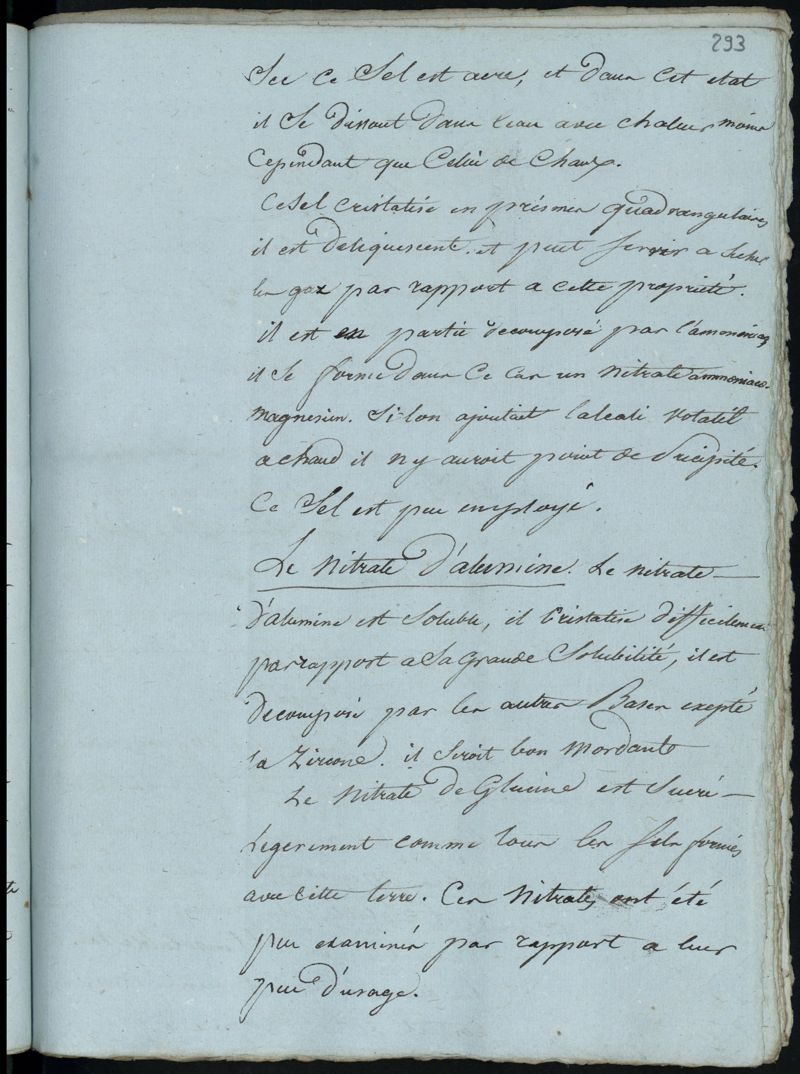 293
Sec ce Sel est acre, et dans cet etat
il se dissout dans leau avec chaleur moins
Cependant que Celui de Chaux.
Ce Sel cristalise en prismes quadrangulaires
il est deliquescent. et peut servir a secher
les gaz par rapport a cette propriété.
il est en partie decomposé par l'amoniaq
il se forme dans ce cas un nitrate ammoniaco-
magnesien. Si lon ajoutait lalcali volatil
a chaud il n'y auroit point de précipité.
Ce Sel est peu employé.
Le Nitrate D'alumine. Le nitrate
D'alumine est soluble, il Cristalise difficilement
par rapport a sa grande Solubilité, il est
Decomposé par les autres Bases exepté
la Zircone. il seroit bon Mordant
Le Nitrate de Glucine est Sucré
Legerement comme tous les sels formés
avec cette terre. Ces Nitrates ont été
peu examinés par rapport a leur
peu D'usage.